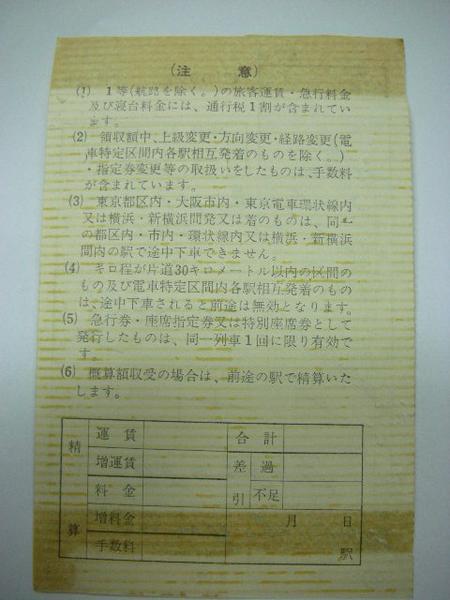 (注 意)
(1) 1等(航路を除く。)の旅客運賃・急行料金
及び寝台料金には、通行税1割が含まれてい
ます。
(2) 領収額中、上級変更・方向変更・経路変更(電
車特定区間内各駅相互発着のものを除く。)
・指定券変更等の取扱いをしたものは、手数料
が含まれています。
(3) 東京都区内・大阪市内・東京電車環状線内
又は横浜・新横浜間発又は着のものは、同一
の都区内・市内・環状線内又は横浜・新横浜
間内の駅で途中下車できません。
(4) キロ程が片道30キロメートル以内の区間の
もの及び電車特定区間内各駅相互発着のもの
は、途中下車されると前途は無効となります。
(5) 急行券・座席指定券又は特別座席券として
発行したものは、同一列車1回に限り有効で
す。
(6) 概算額収受の場合は、前途の駅で精算いた
します。
精算
運賃
増運賃
料金
増料金
手数料
合計
差引
過
不足
月 日
駅